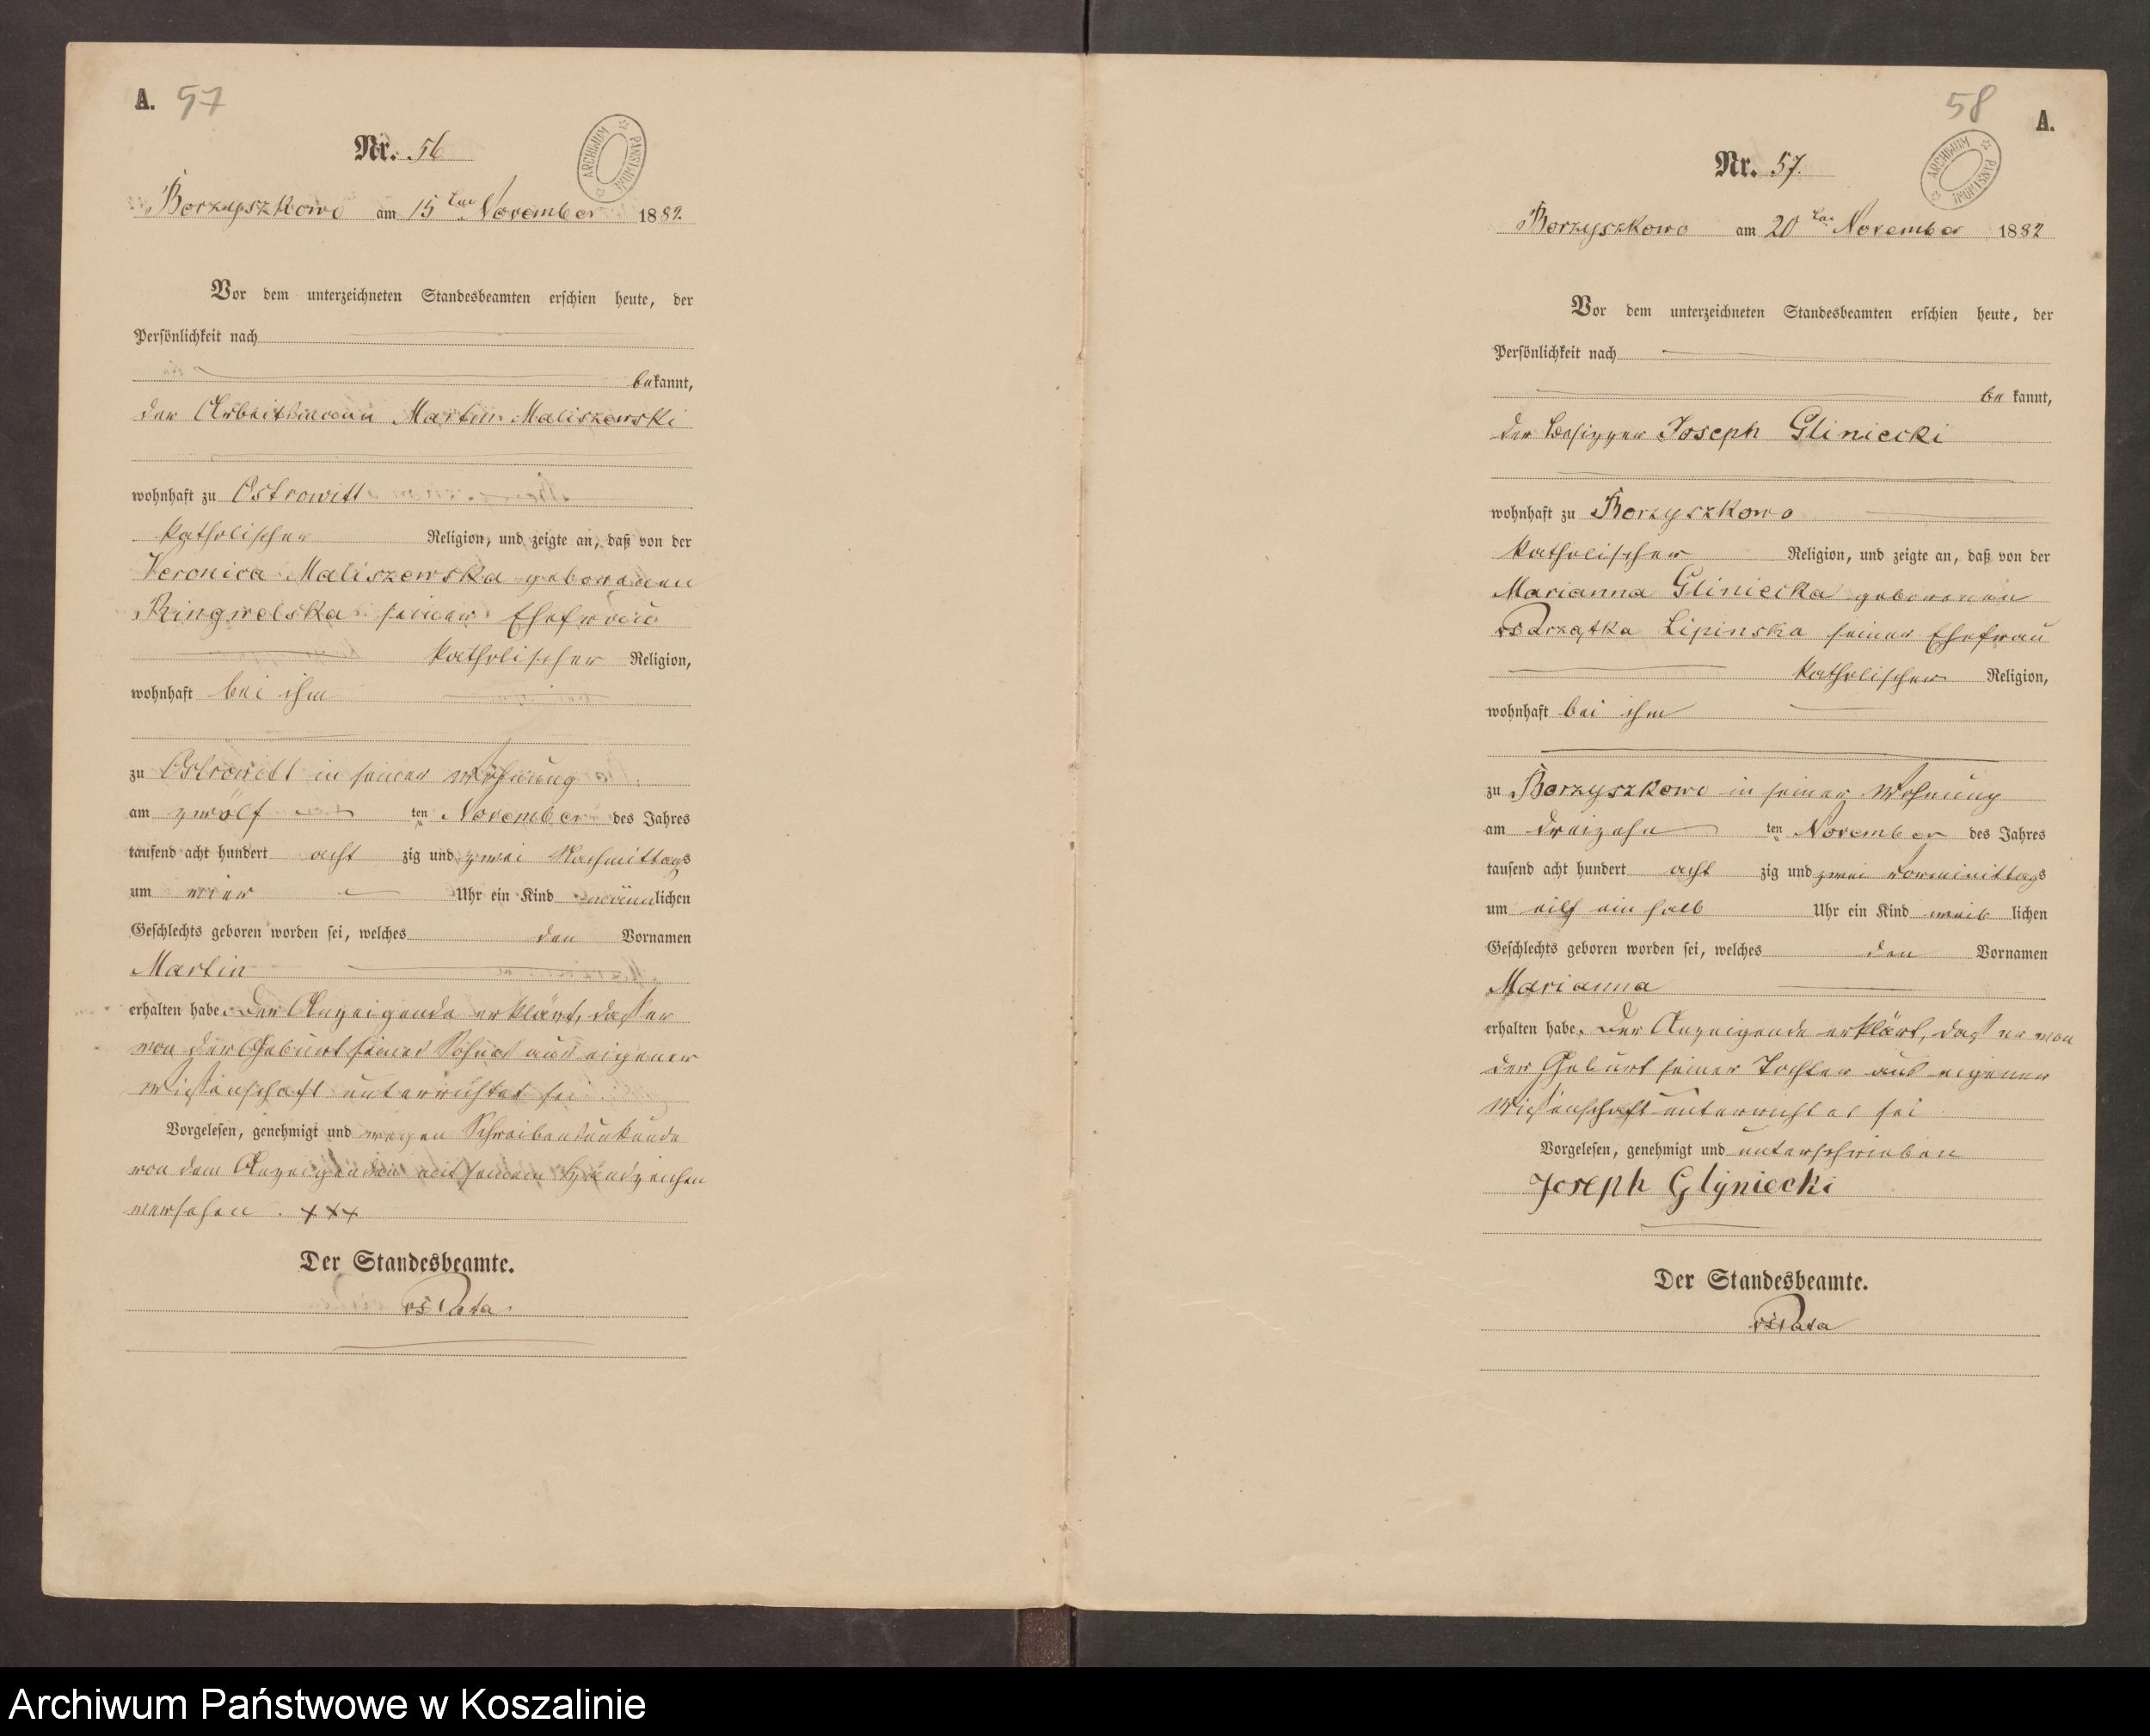 A. 57
Nr. 56
ARCHIWUM PAŃSTWOW
Borzyszkowo am 15 ten November 1882.
Vor dem unterzeichneten Standesbeamten erschien heute, der
Persönlichkeit nach
bekannt,
der Arbeitsmann Martin Maliszewski
wohnhaft zu Ostrowitt
katholischer Religion, und zeigte an, daß von der
Veronica Maliszewska geborenen
Ringwelska seiner Ehefrau
katholischer Religion,
wohnhaft bei ihm
zu Ostrowitt in seiner Wohnung
am zwölf ten November des Jahres
tausend acht hundert acht zig und zwei Nachmittags
um vier Uhr ein Kind männlichen
Geschlechts geboren worden sei, welches den Vornamen
Martin
erhalten habe. Der Anzeigende erklärt, daß er
von der Geburt seines Sohnes aus eigener
Wißenschaft unterrichtet sei
Vorgelesen, genehmigt und wegen Schreibensunkunde
von dem Anzeigenden mit seinem Handzeichen
versehen. +++
Der Standesbeamte.
58 A.
Nr. 57.
ARCHIWUM PAŃSTWOW
Borzyszkowo am 20 ten November 1882
Vor dem unterzeichneten Standesbeamten erschien heute, der
Persönlichkeit nach
be kannt,
der Besitzer Joseph Gliniecki
wohnhaft zu Borzyszkowo
katholischer Religion, und zeigte an, daß von der
Marianna Gliniecka geborenen
Lipinska seiner Ehefrau
katholischer Religion,
wohnhaft bei ihm
zu Borzyszkowo in seiner Wohnung
am dreizehn ten November des Jahres
tausend acht hundert acht zig und zwei Vormittags
um eilf ein halb Uhr ein Kind weib lichen
Geschlechts geboren worden sei, welches den Vornamen
Marianna
erhalten habe. Der Anzeigende erklärt, daß er von
der Geburt seiner Tochter aus eigener
Wißenschaft unterrichtet sei
Vorgelesen, genehmigt und unterschrieben
Joseph Glyniecki
Der Standesbeamte.
Archiwum Państwowe w Koszalinie